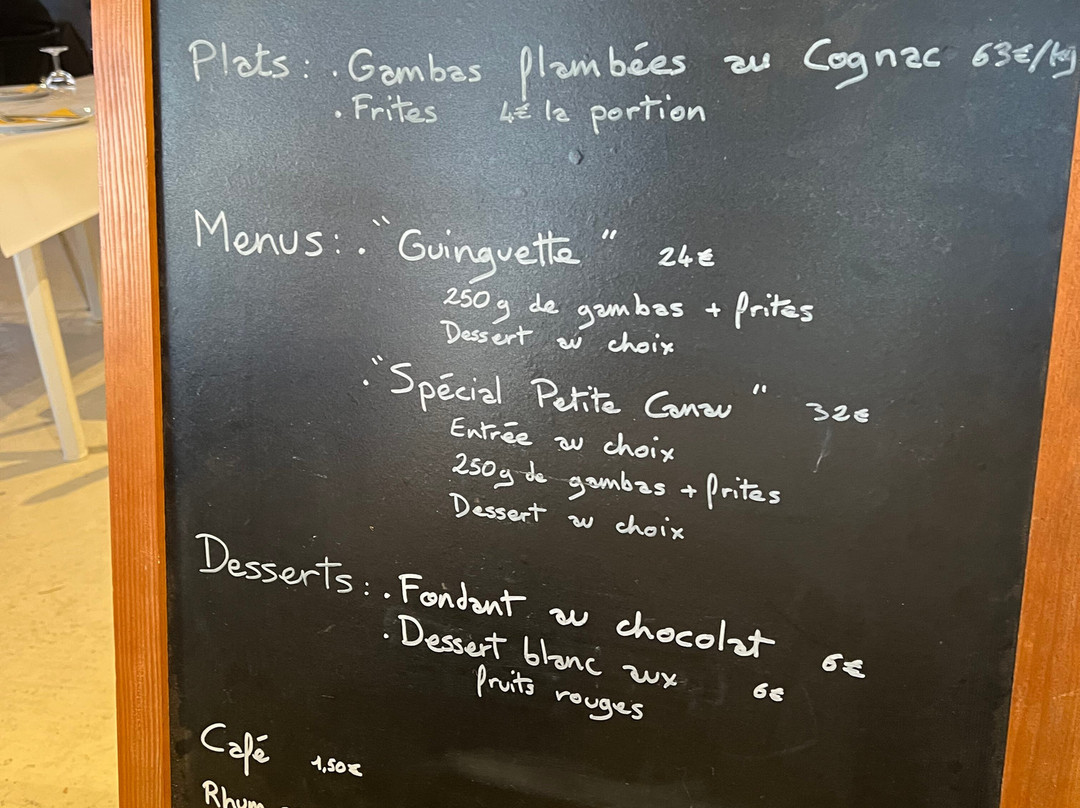 Plats : . Gambas flambées au Cognac 63€/kg
. Frites 4€ la portion
Menus : . "Guinguette" 24€
250g de gambas + frites
Dessert au choix
. "Spécial Petite Canau" 32€
Entrée au choix
250g de gambas + frites
Dessert au choix
Desserts : . Fondant au chocolat 6€
. Dessert blanc aux 6€
fruits rouges
Café 1,50€
Rhum